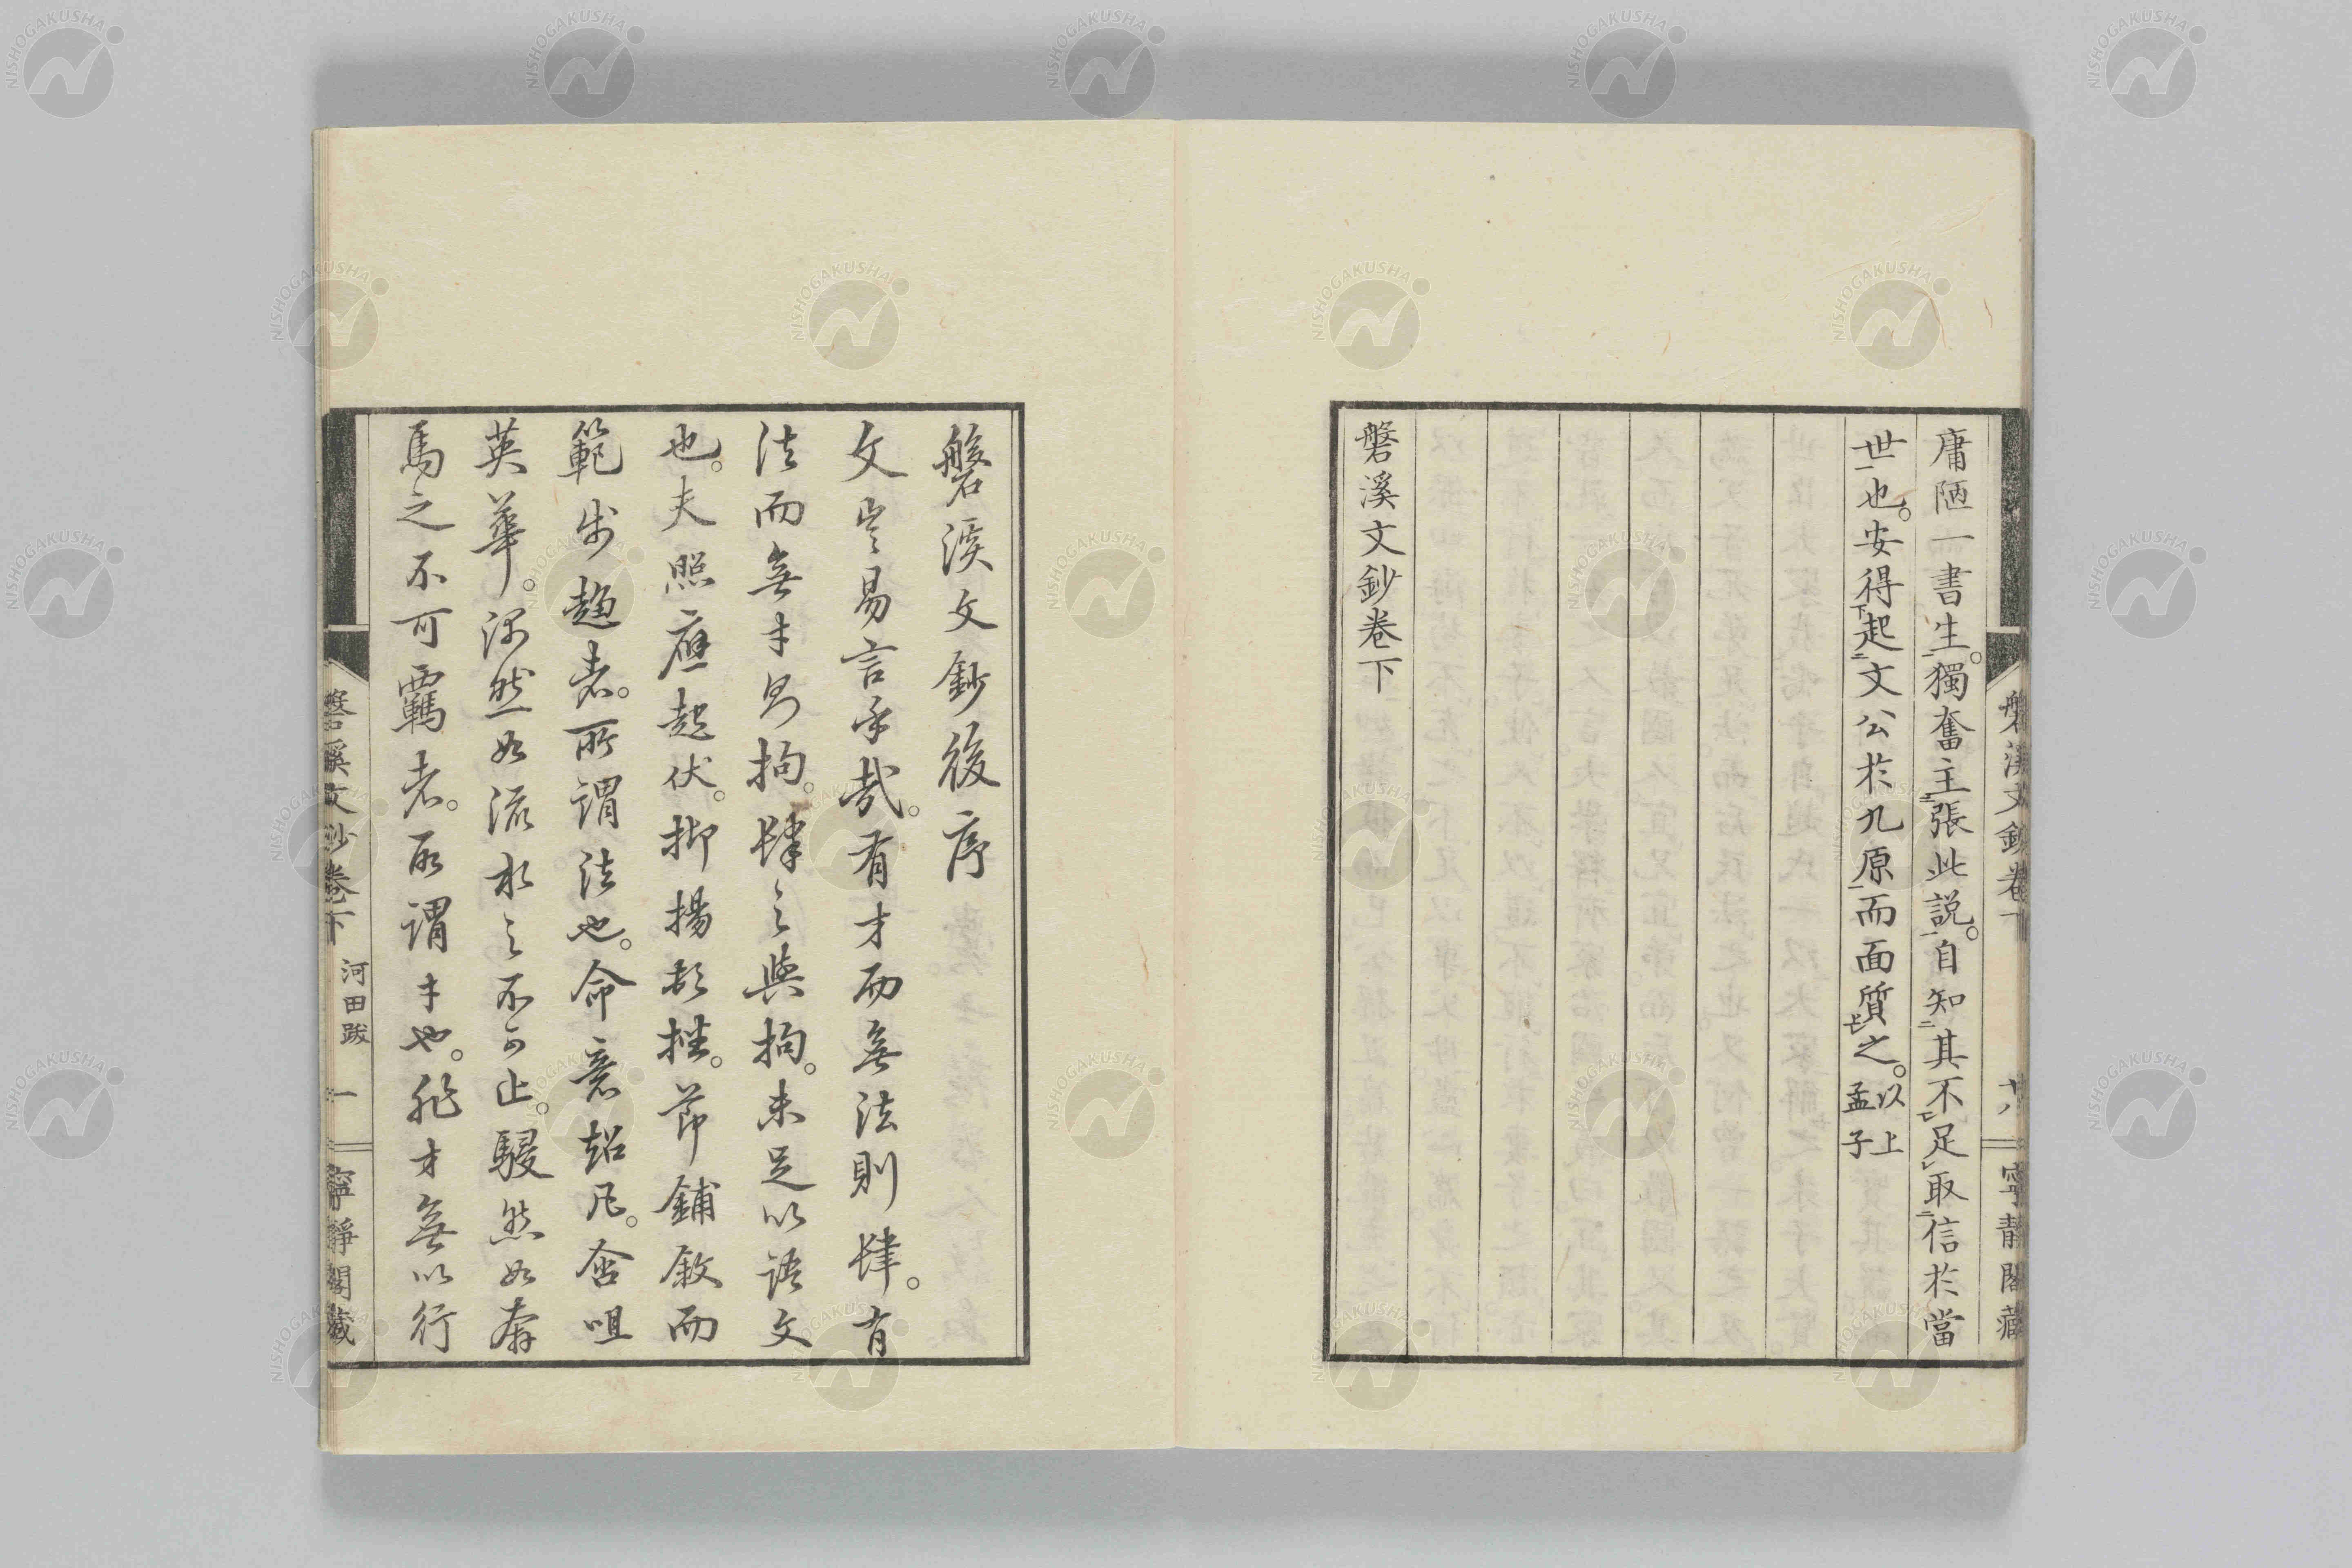 庸陋一書生。獨奮主張此説。自知其不足取信於當
世也。安得起文公於九原而面質之。以上孟子
磐溪文鈔卷下
磐溪文鈔卷下
廿八
寧靜閣藏
磐溪文鈔後序
文豈易言乎哉。有才而無法則肆。有
法而無才則拘。肆之與拘。未足以語文
也。夫照應起伏。抑揚頓挫。節鋪敘而
範步趨者。所謂法也。命意超凡。含咀
英華。渾然如流水之不可止。駸然如奔
馬之不可羈者。所謂才也。非才無以行
磐溪文鈔卷下
河田跋
一
寧靜閣藏
NISHOGAKUSHA